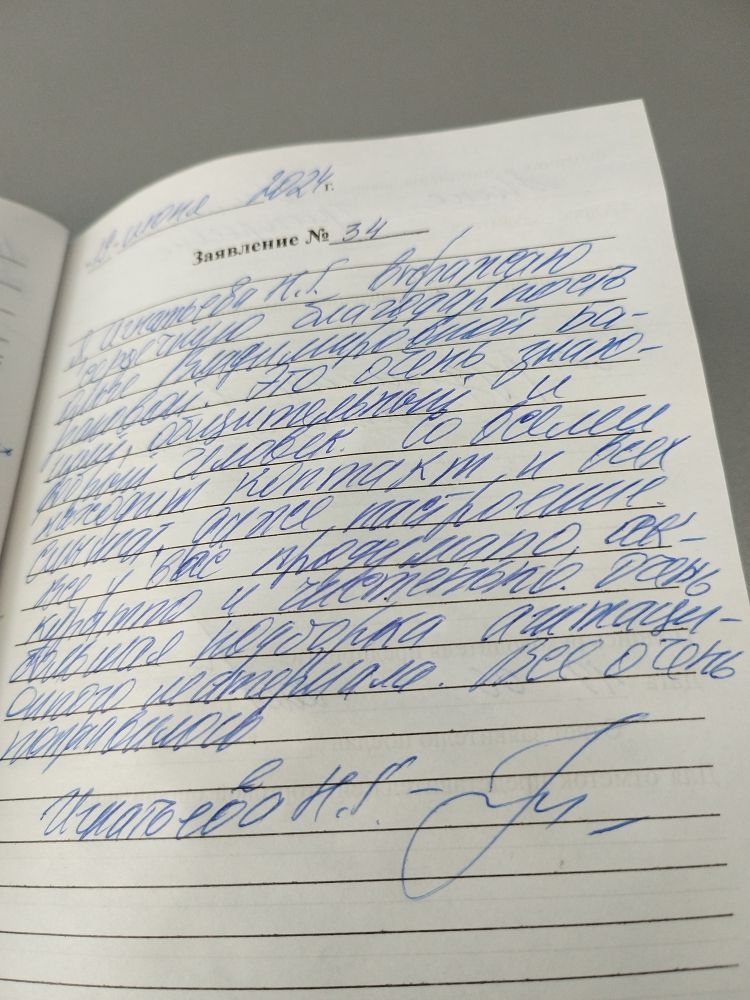 "19" июня 2024 г.
Заявление № 34
Я, Игнатьева Н.Г. выражаю
сердечную благодарность
Владимировной Ба-
Это очень знаю-
щий, общительный и
добрый человек. Со всеми
находит контакт и всех
настроение.
все у вас продумано, ак-
куратно и чистенько. Очень
большая подборка агитаци-
онного материала. Все очень
понравилось.
Игнатьева Н.Г. –